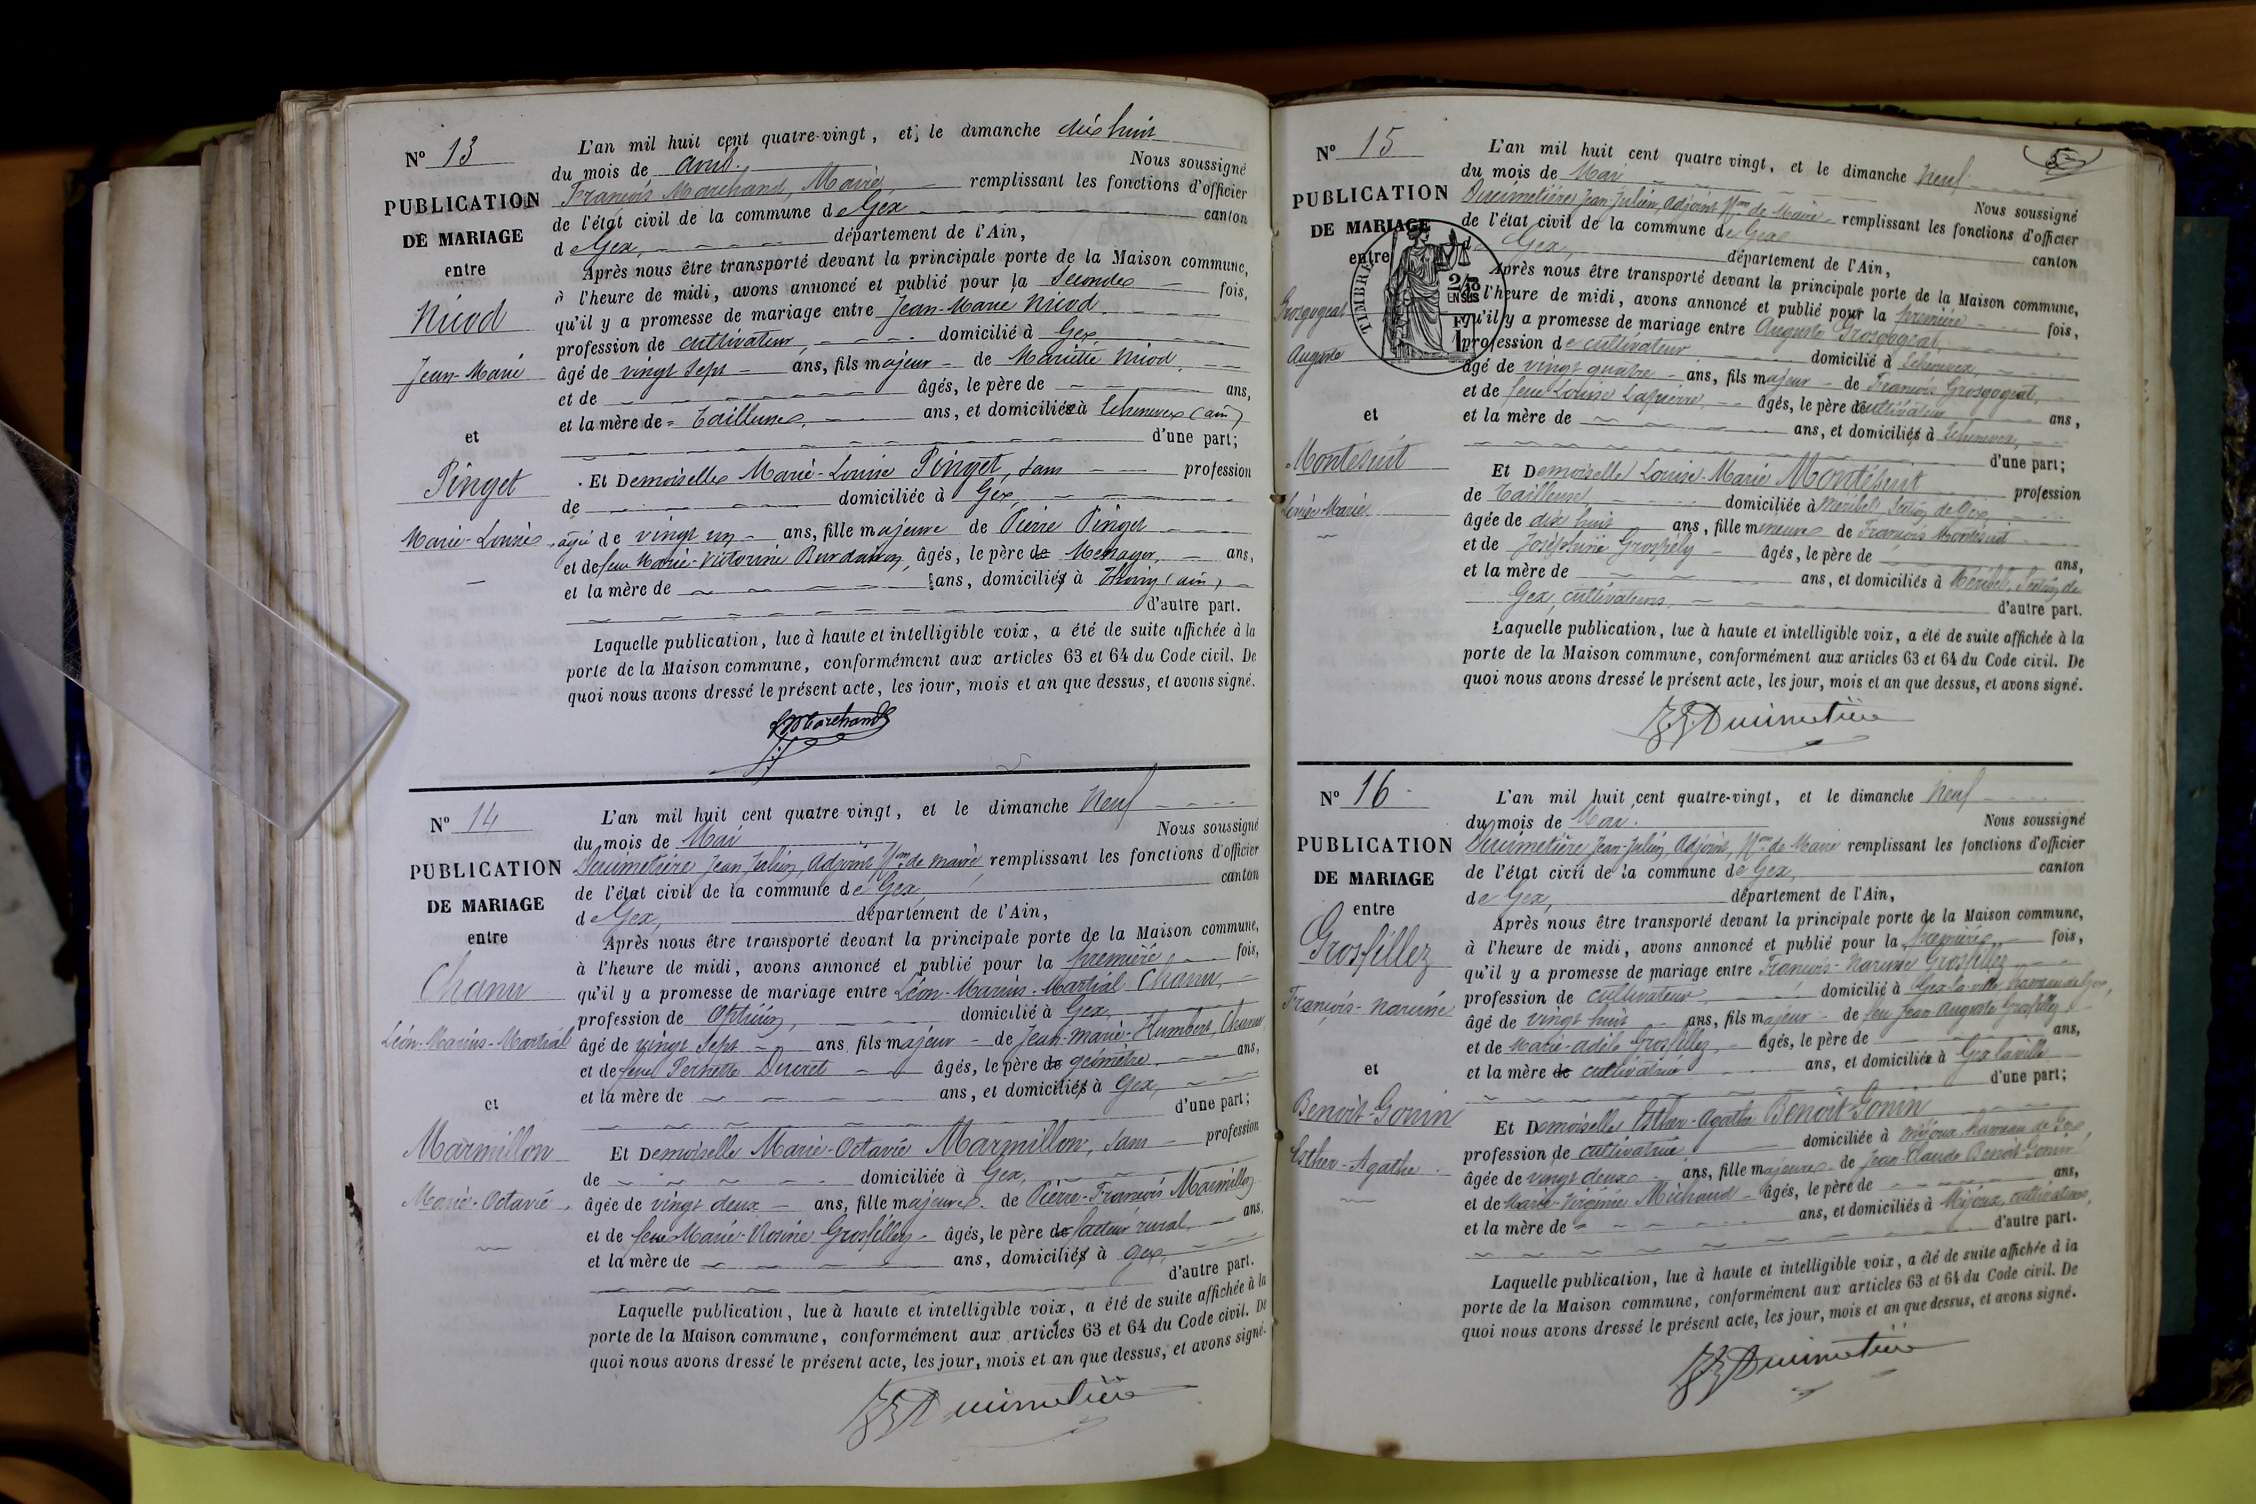 N° 13
PUBLICATION
DE MARIAGE
entre
Nicod
Jean-Marie
et
Pinget
Marie-Louise
L'an mil huit cent quatre-vingt, et le dimanche dix huit
du mois de avril. Nous soussigné
François Marchand, Maire, remplissant les fonctions d'officier
de l'état civil de la commune de Gex canton
de Gex, département de l'Ain,
Après nous être transporté devant la principale porte de la Maison commune,
à l'heure de midi, avons annoncé et publié pour la Seconde fois,
qu'il y a promesse de mariage entre Jean-Marie Nicod
profession de cultivateur, domicilié à Gex
âgé de vingt sept ans, fils majeur de Mariette Nicod,
et de âgés, le père de ans,
et la mère de Tailleuse, ans, et domiciliés à Echenevex (ain)
d'une part;
Et Demoiselle Marie-Louise Pinget, sans profession
de domiciliée à Gex,
âgée de vingt un ans, fille majeure de Pierre Pinget
et de feue Marie-Victorine âgés, le père de ans,
et la mère de ans, domiciliés à Thoiry (ain),
d'autre part.
Laquelle publication, lue à haute et intelligible voix, a été de suite affichée à la
porte de la Maison commune, conformément aux articles 63 et 64 du Code civil. De
quoi nous avons dressé le présent acte, les jour, mois et an que dessus, et avons signé.
F. Marchand
N° 14
PUBLICATION
DE MARIAGE
entre
Chanu
Léon-Marius-Martial
et
Marmillon
Marie-Octavie
L'an mil huit cent quatre-vingt, et le dimanche Neuf
du mois de Mai Nous soussigné
Ducimetière Jean Julien, adjoint, de maire, remplissant les fonctions d'officier
de l'état civil de la commune de Gex, canton
de Gex, département de l'Ain,
Après nous être transporté devant la principale porte de la Maison commune,
à l'heure de midi, avons annoncé et publié pour la première fois,
qu'il y a promesse de mariage entre Léon-Marius-Martial Chanu,
profession de Opticien, domicilié à Gex,
âgé de vingt sept ans, fils majeur de Jean-Marie-Humbert Chanu
et de feue Pernette Ducret âgés, le père de géomètre ans,
et la mère de ans, et domiciliés à Gex,
d'une part;
Et Demoiselle Marie-Octavie Marmillon, sans profession
de domiciliée à Gex,
âgée de vingt deux ans, fille majeure de Pierre-François Marmillon
et de feue Marie-Rosine Grosfilley âgés, le père de facteur rural, ans,
et la mère de ans, domiciliés à Gex,
d'autre part.
Laquelle publication, lue à haute et intelligible voix, a été de suite affichée à la
porte de la Maison commune, conformément aux articles 63 et 64 du Code civil. De
quoi nous avons dressé le présent acte, les jour, mois et an que dessus, et avons signé.
JJ Ducimetière
N° 15
PUBLICATION
DE MARIAGE
entre
Grosgogeat
Auguste
et
Montésuit
Louise Marie
TIMBRE
2/10
EN SUS
L'an mil huit cent quatre vingt, et le dimanche Neuf
du mois de Mai Nous soussigné
Ducimetière Jean Julien, Adjoint de Maire remplissant les fonctions d'officier
de l'état civil de la commune de Gex canton
de Gex, département de l'Ain,
Après nous être transporté devant la principale porte de la Maison commune,
à l'heure de midi, avons annoncé et publié pour la première fois,
qu'il y a promesse de mariage entre Auguste Grosgogeat,
profession de cultivateur domicilié à Echenevex,
âgé de vingt quatre ans, fils majeur de François Grosgogeat,
et de feue Louise Lapierre, âgés, le père cultivateur ans,
et la mère de ans, et domiciliés à Echenevex,
d'une part;
Et Demoiselle Louise-Marie Montésuit profession
de Tailleuse, domiciliée à Méribel, section de Gex,
âgée de dix huit ans, fille mineure de François Montésuit
et de Joséphine âgés, le père de ans,
et la mère de ans, et domiciliés à Méribel, Section de
Gex, cultivateurs, d'autre part.
Laquelle publication, lue à haute et intelligible voix, a été de suite affichée à la
porte de la Maison commune, conformément aux articles 63 et 64 du Code civil. De
quoi nous avons dressé le présent acte, les jour, mois et an que dessus, et avons signé.
JJ Ducimetière
N° 16
PUBLICATION
DE MARIAGE
entre
Grosfillez
François-Narcisse
et
Benoit-Gonin
Esther-Agathe
L'an mil huit cent quatre-vingt, et le dimanche Neuf
du mois de Mai. Nous soussigné
Ducimetière Jean-Julien, Adjoint, de Maire remplissant les fonctions d'officier
de l'état civil de la commune de Gex, canton
de Gex, département de l'Ain,
Après nous être transporté devant la principale porte de la Maison commune,
à l'heure de midi, avons annoncé et publié pour la première fois,
qu'il y a promesse de mariage entre François-Narcisse Grosfillez
profession de cultivateur, domicilié à Gex-la-ville, hameau de Gex,
âgé de vingt huit ans, fils majeur de feu Jean Auguste Grosfillez,
et de Marie-Adèle Grosfillez, âgés, le père de ans,
et la mère de cultivatrice ans, et domiciliés à Gex la ville
d'une part;
Et Demoiselle Esther-Agathe Benoit-Gonin
profession de cultivatrice domiciliée à Mijoux, hameau de Gex,
âgée de vingt deux ans, fille majeure de Jean-Claude Benoit-Gonin
et de Marie-Virginie Michaud âgés, le père de ans,
et la mère de ans, et domiciliés à Mijoux, cultivateurs,
d'autre part.
Laquelle publication, lue à haute et intelligible voix, a été de suite affichée à la
porte de la Maison commune, conformément aux articles 63 et 64 du Code civil. De
quoi nous avons dressé le présent acte, les jour, mois et an que dessus, et avons signé.
JJ Ducimetière